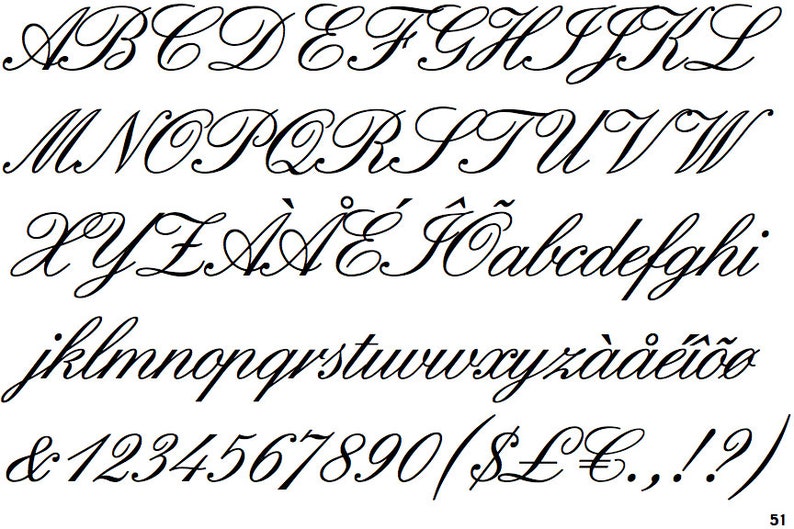 ABCDEFGHIJKL
MNOPQRSTUVW
XYZÀÅÉÎÕabcdefghi
jklmnopqrstuvwxyzàåéîõø
&1234567890($£€.,!?)
51